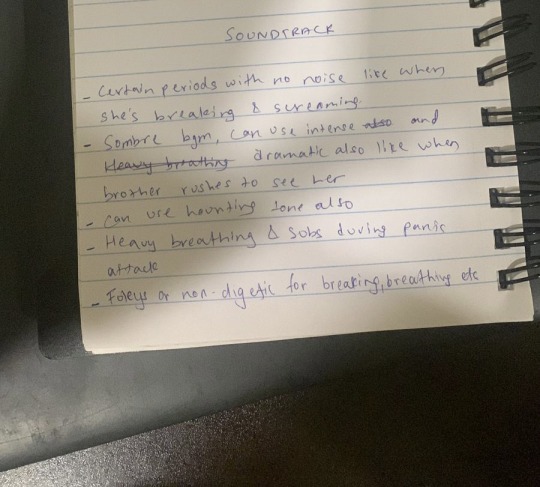 SOUNDTRACK
- Certain periods with no noise like when
she's breaking & screaming.
- Sombre bgm, can use intense also and
Heavy breathing dramatic also like when
brother rushes to see her
- Can use haunting tone also
- Heavy breathing & sobs during panic
attack
- Foleys or non-digetic for breaking, breathing etc